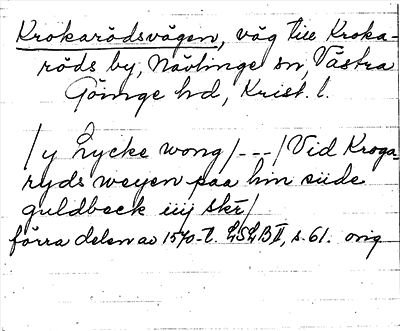 Krokarödsvägen, väg till Kroka-
röds by, Nävlinge sn, Västra
Göinge hd, Krist. l.
/ y Lycke wong / --- / Vid Kroga-
ryds weyen paa hin siide
guldbeck iiij skr /
förra delen av 1570-t. LSLB II, s. 61. orig